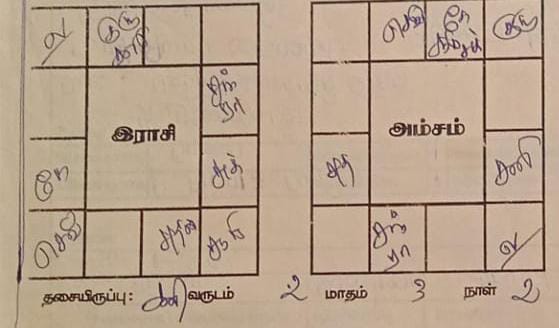 ல குரு சனி செவ் கே குரு
சந் ரா
இராசி அம்சம்
கே சுக் புத சனி
செவ் சூரி சந் ரா ல
தசையிருப்பு: சனி வருடம் 2 மாதம் 3 நாள் 2